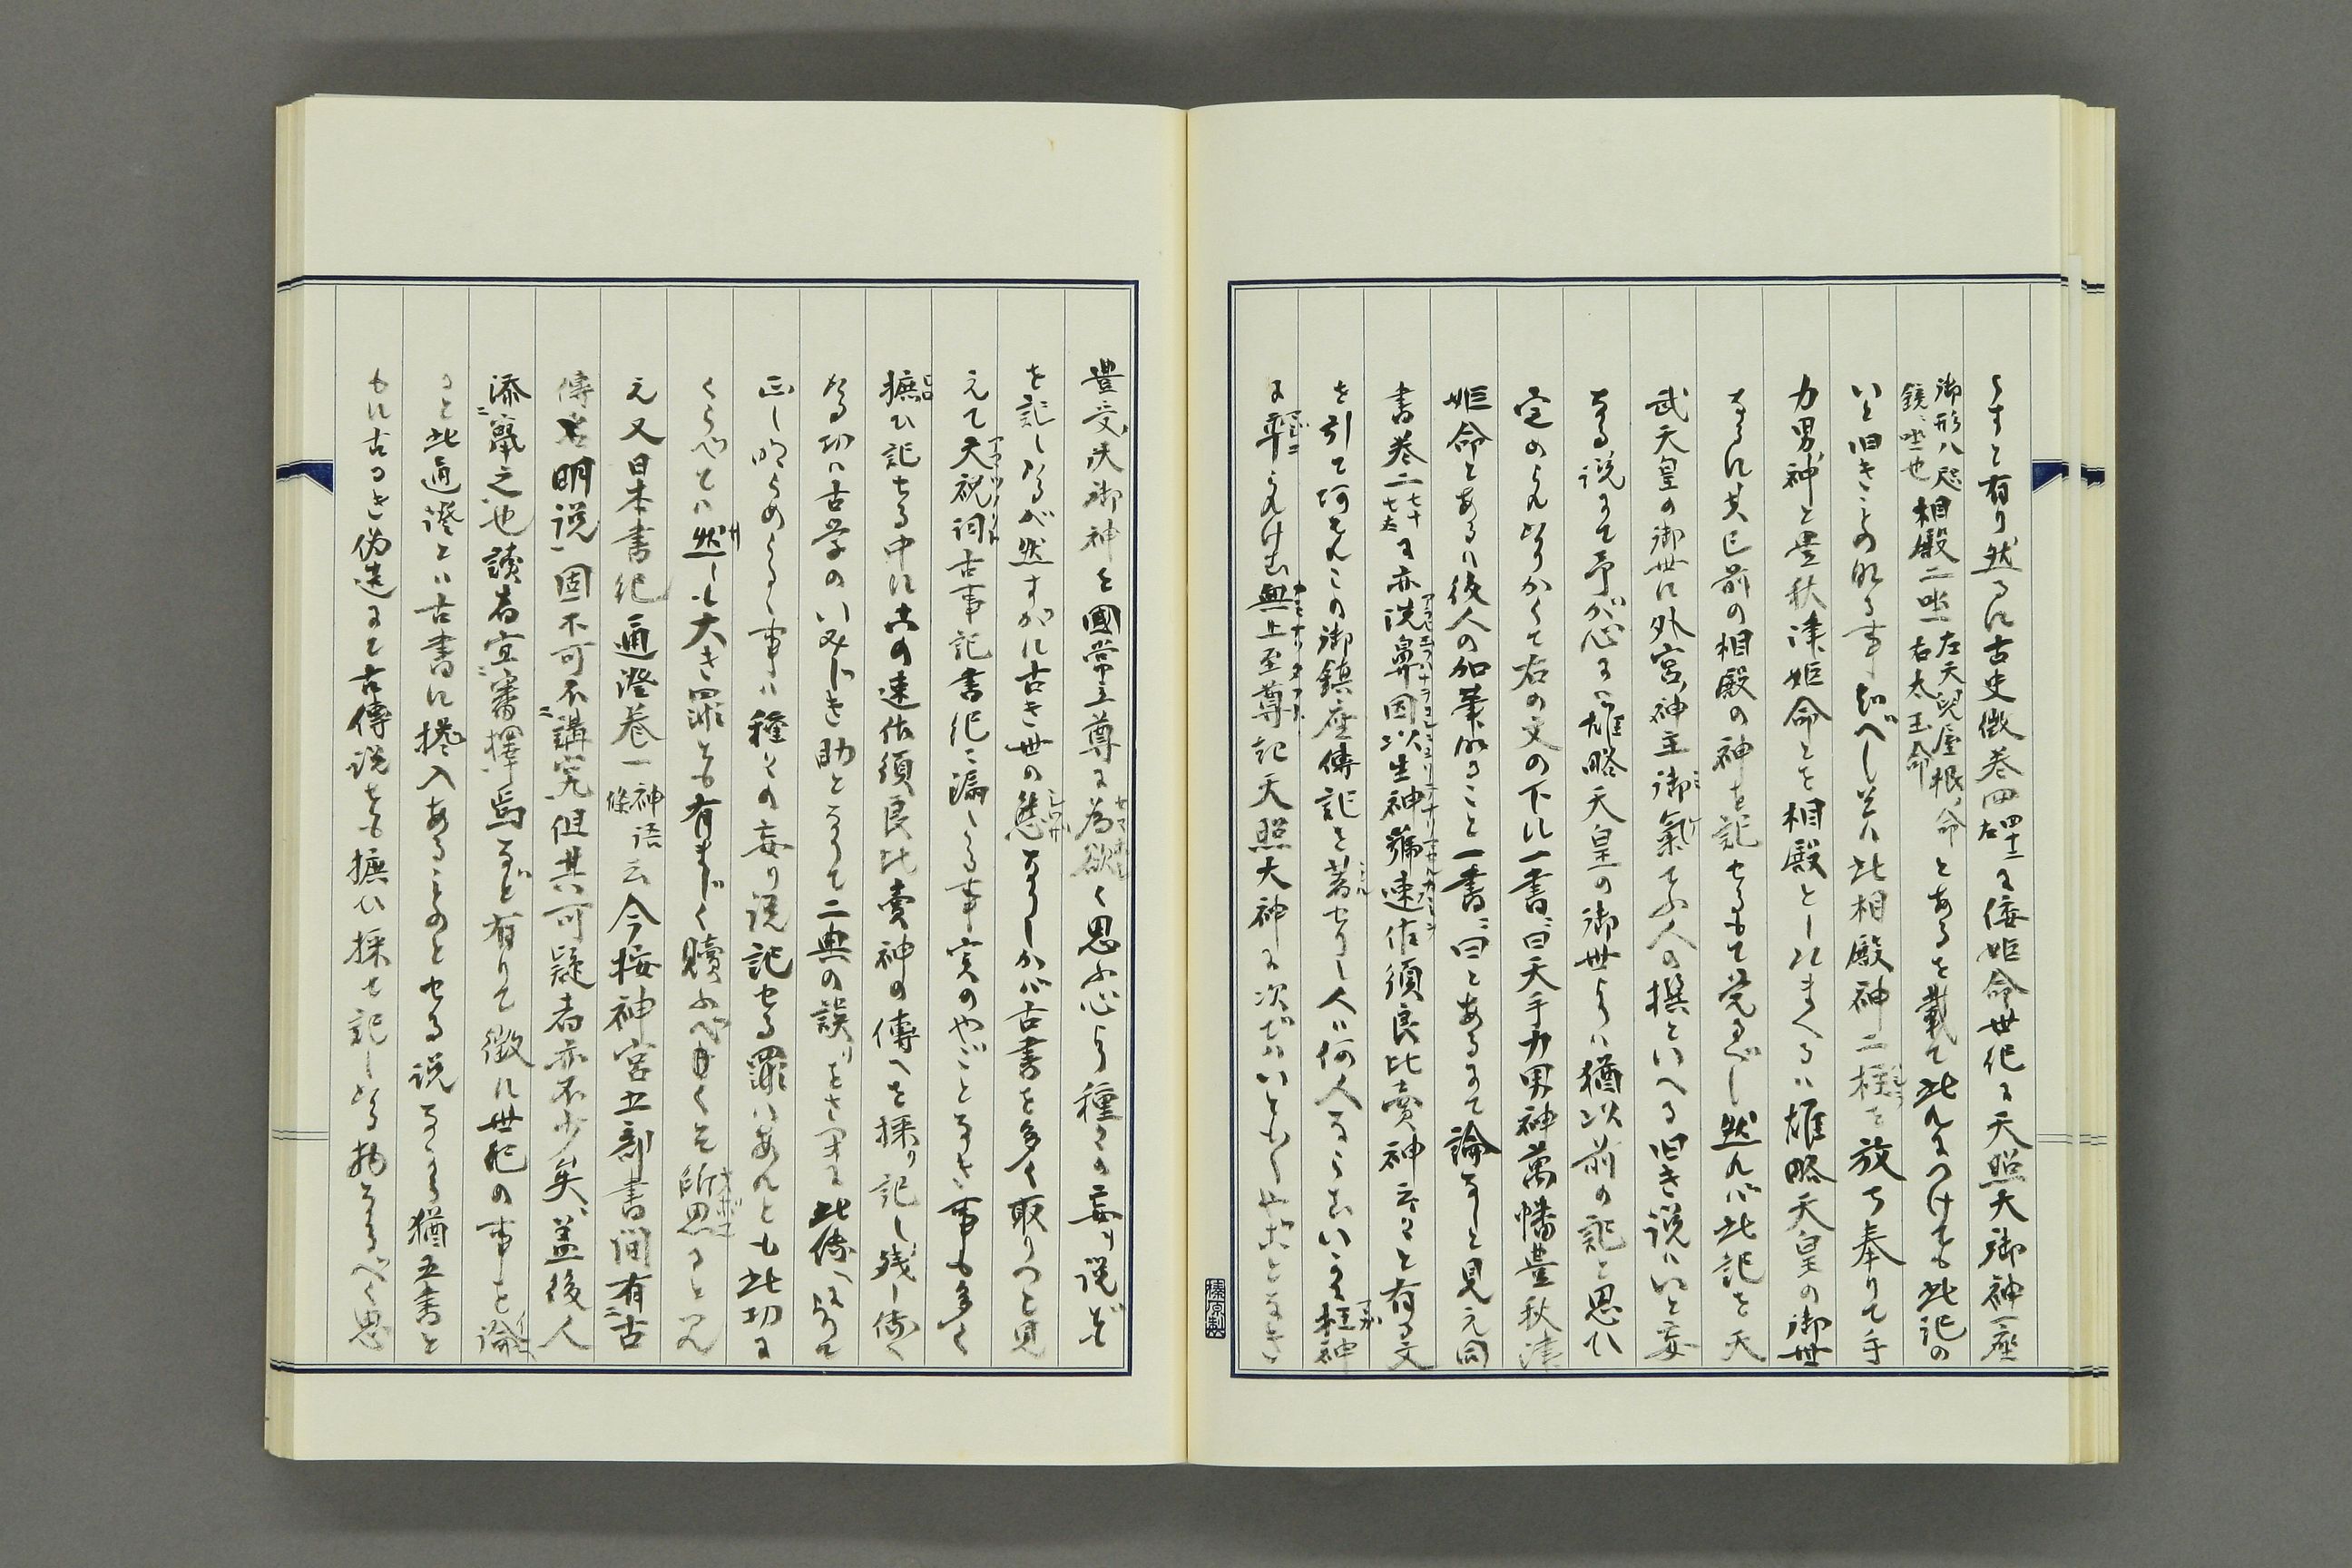 らすと有り然るに古史徴巻四四十二左に倭姫命世紀に天照大御神一座
御形八咫鏡ニ坐也相殿二坐左天兒屋根命右太玉命とあるを載て此れにつけても此記の
いと旧きことの知る事ぞべし其は此相殿神二柱を放ち奉りて手
力男神と豊秋津姫命とを相殿としれまへるは雄略天皇の御世
なるに其已前の相殿の神を記せるもて覚るべし然れば此記を天
武天皇の御世に外宮神主御氣てふ人の撰といへる旧き説はいと妄
なる説にて予が心には雄略天皇の御世よりは猶以前の記と思ひ
定のられけりかくて右の文の下に一書曰天手力男神萬幡豊秋津
姫命とあるは後人の加筆なること一書曰とあるにて論なしと見え同
書巻二七十七左に亦洗鼻因以生神號速佐須良比賣神云々と有る文
を引て何それこの御鎮座傳記を著せりし人は何人ならむいかる枉神
に率られけむ無上至尊記天照大神に次ぎはいといとやごとなき
豊受大御神を國常立尊に為欲く思ふ心より種々の妄り説ぞ
を記しけるが然すがに古き世の態なりしかば古書を多く取りつと見
えて天祝詞古事記書紀に漏たる事実のやごとなき事も多く
摭ひ記せる中に古の速佐須良比賣神の傳へを採り記し残し傳へ
ける功は古学のいみじき助となりて二典の誤りをさヘに此傳によりて
正し明らめらるゝ事は種々の妄り説記せる罪はあれとも此功に
くらべては然しも大き罪にも有まじく贖ふべくそ所思ると見
え又日本書紀通證巻一神語條云今按神宮五部書間有古
傳名明説固不可不講究但其可疑者亦不少矣蓋後人
添竄之也讀者宜審擇焉など有りて徴に世紀の事を論
ると此通證とは古書に攙入あることのとせる説なる猶五書と
もに古るき偽造にて古傳説をも摭ひ採て記しける物なるべく思
榛原製